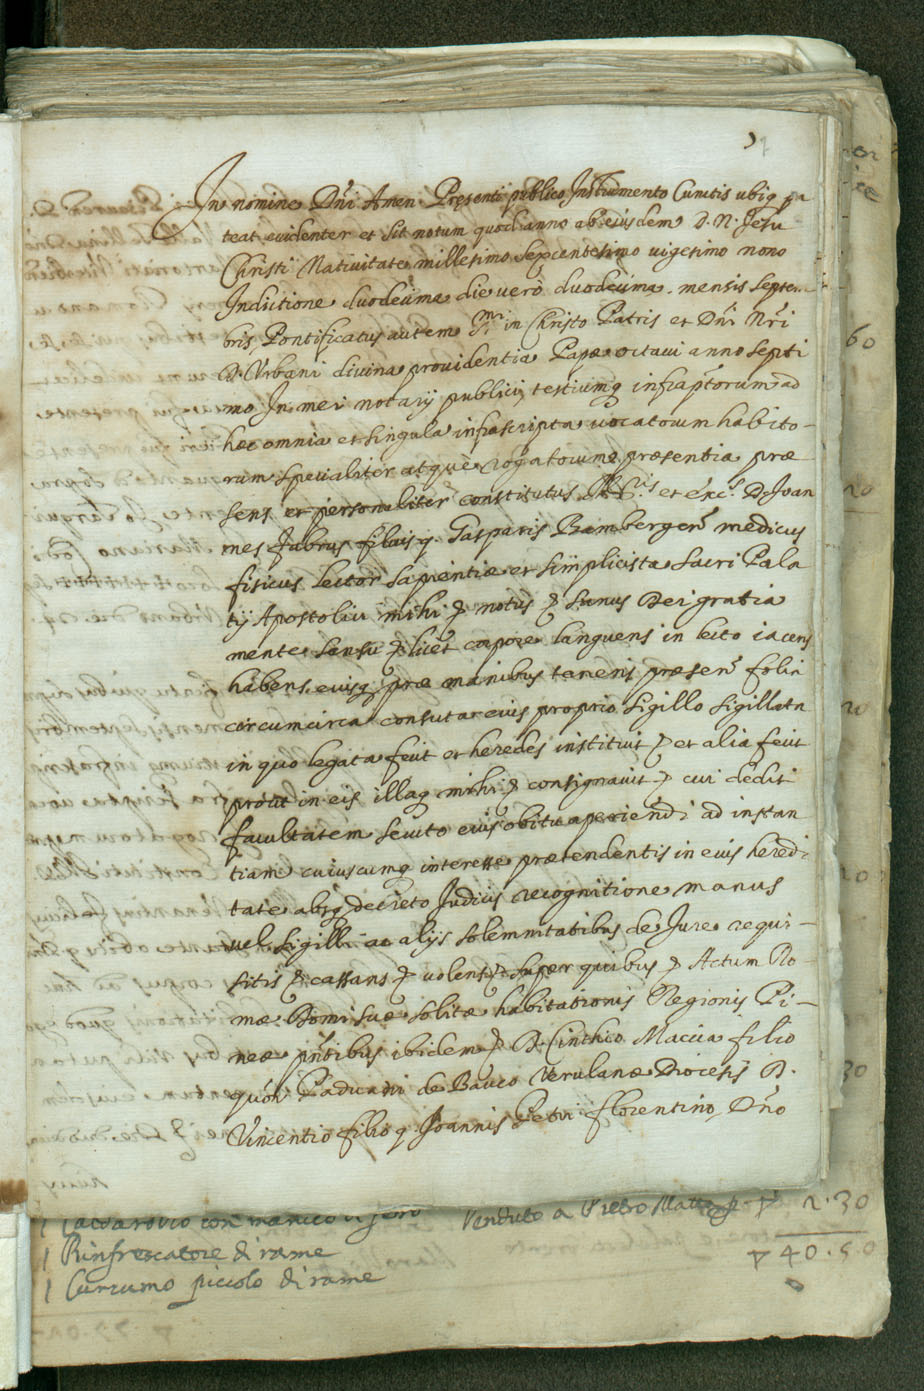 In nomine Dñi Amen Presenti publico Instrumento Cunctis ubiq pa
teat evidenter et sit notum quod anno ab eiusdem D. N. Jesu
Christi Nativitate millesimo sexcentesimo vigesimo nono
Indictione duodecima die verò duodecima mensis Septem
bris Pontificatus autem in Christo Patris et Dñi Nr̃i
D. Urbani divina providentia Papæ octavi anno septi
mo In mei notarij publici, testiumq infraptorum ad
hæc omnia et singula infrascripta vocatorum habito-
rum specialiter atquè rogatorumq præsentia præ
sens et personaliter constitutus et exc.s D. Joan
nes fabrus filius q. Gasparis Bambergeñ medicus
fisicus lector sapientiæ et simplicista Sacri Pala
tij Apostolici mihi & notus & sanus Dei gratia
mente sensu & licet corpore languens in lecto iacens
habens eiusq præ manibus tenens præseñ folia
circumcirca consuta eius proprio sigillo sigillata
in quo legata fecit et heredes instituit & et alia fecit
prout in eis illaq mihi & consignavit & cui dedit
facultatem secuto eius obitu aperiendi ad instan
tiam cuiuscumq interesse prætendentis in eius heredi
tate absq decreto Judicis recognitione manus
vel sigilli ac alijs solemnitatibus de Jure requi-
sitis & cassans & volens & super quibus & Actum Ro-
mæ Domi suæ solitæ habitationis Regionis Pi-
neæ pñtibus ibidem & D. Cinthio Maccia filio
quoñ de Bauco Verulanæ Diocesis D.
Vincentio filio q. Joannis Petri florentino, Dño
60
20
20
20
30
con manico di ferro Venduto a Pietro 2.30
1 Rinfrescatore di rame 40.50
1 piccolo di rame